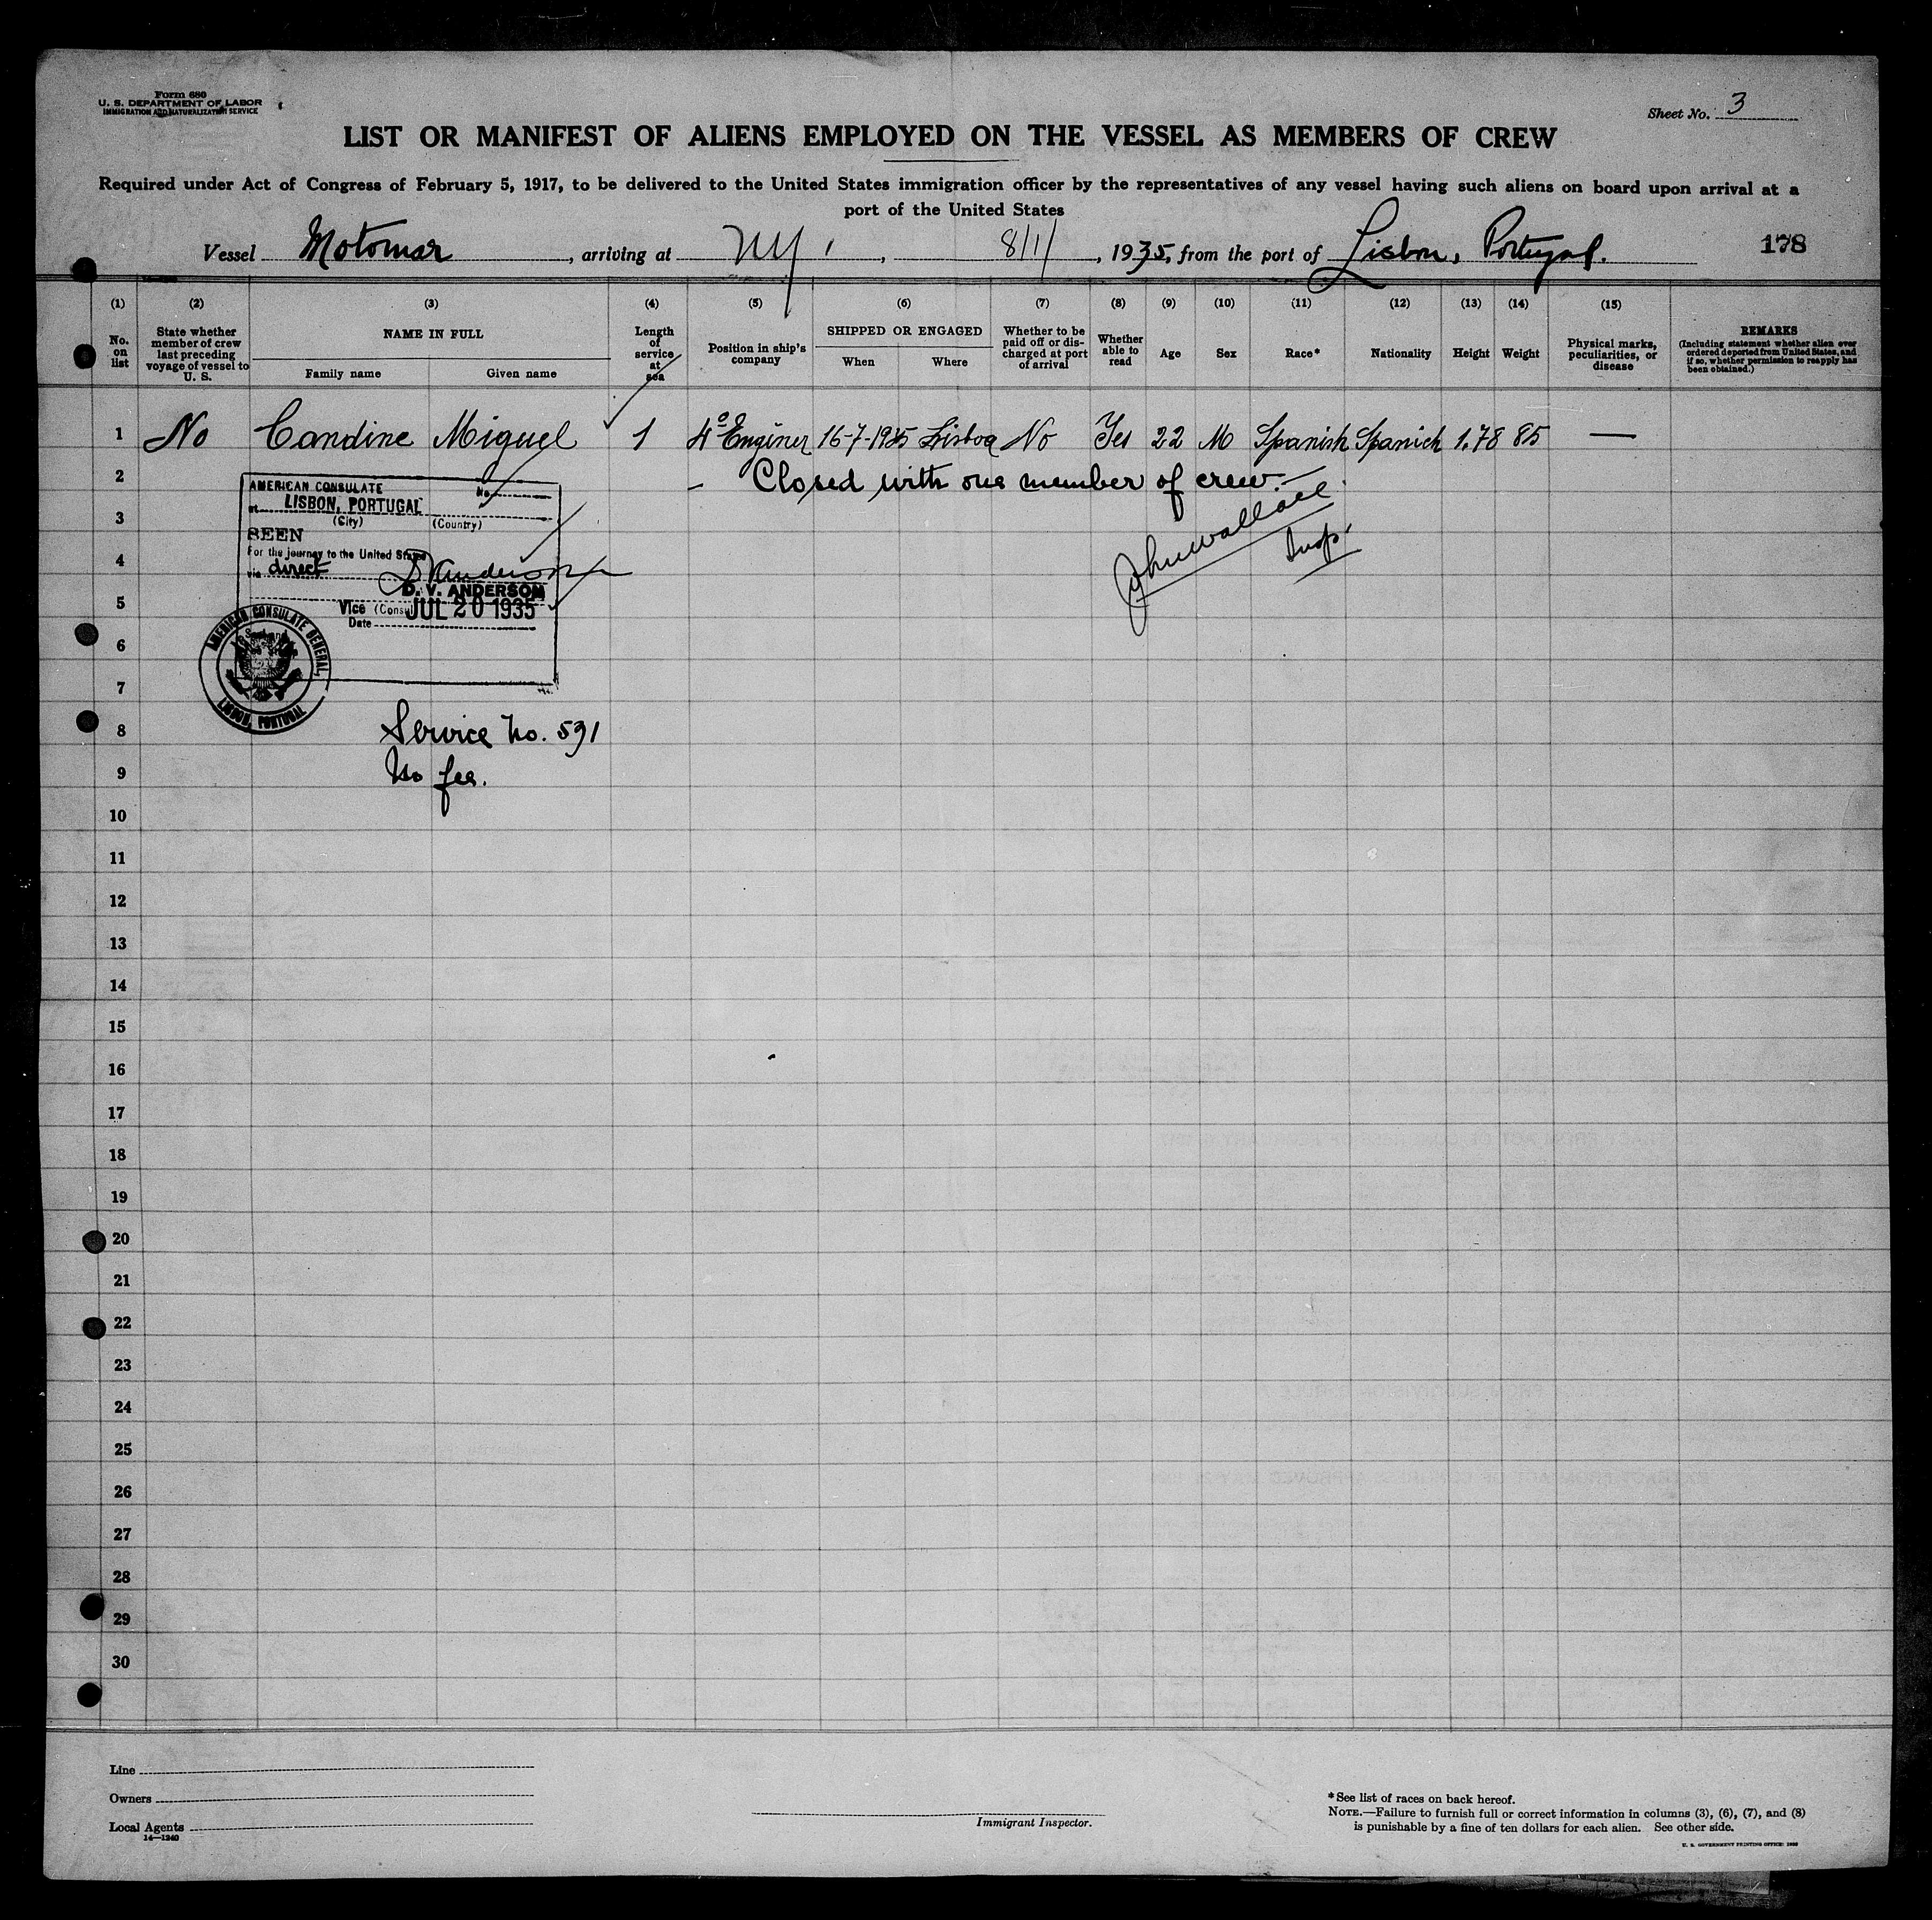 Form 680
U. S. DEPARTMENT OF LABOR
IMMIGRATION AND NATURALIZATION SERVICE
Sheet No. 3
LIST OR MANIFEST OF ALIENS EMPLOYED ON THE VESSEL AS MEMBERS OF CREW
Required under Act of Congress of February 5, 1917, to be delivered to the United States immigration officer by the representatives of any vessel having such aliens on board upon arrival at a
port of the United States
Vessel Motomar, arriving at NY, 8/1/, 1935, from the port of Lisbon, Portugal. 178
(1) (2) (3) (4) (5) (6) (7) (8) (9) (10) (11) (12) (13) (14) (15)
No. on list
State whether member of crew last preceding voyage of vessel to U. S.
NAME IN FULL
Family name Given name
Length of service at sea
Position in ship's company
SHIPPED OR ENGAGED
When Where
Whether to be paid off or discharged at port of arrival
Whether able to read
Age
Sex
Race*
Nationality
Height
Weight
Physical marks, peculiarities, or disease
REMARKS
(Including statement whether alien ever ordered deported from United States, and if so, whether permission to reapply has been obtained.)
1 No Candine Miguel 1 4º Enginer 16-7-1935 Lisboa No Yes 22 M Spanish Spanich 1.78 85 —
2 - Closed with one member of crew.-
John Wallace
Insp.
AMERICAN CONSULATE No.
at LISBON, PORTUGAL
(City) (Country)
SEEN
For the journey to the United States
via direct
D. V. ANDERSON
Vice (Consul
Date JUL 20 1935
AMERICAN CONSULATE GENERAL
LISBON, PORTUGAL
3
4
5
6
7
8 Service No. 591
9 No fee.
10
11
12
13
14
15
16
17
18
19
20
21
22
23
24
25
26
27
28
29
30
Line
Owners
Local Agents
14—1240
Immigrant Inspector.
*See list of races on back hereof.
NOTE.—Failure to furnish full or correct information in columns (3), (6), (7), and (8)
is punishable by a fine of ten dollars for each alien. See other side.